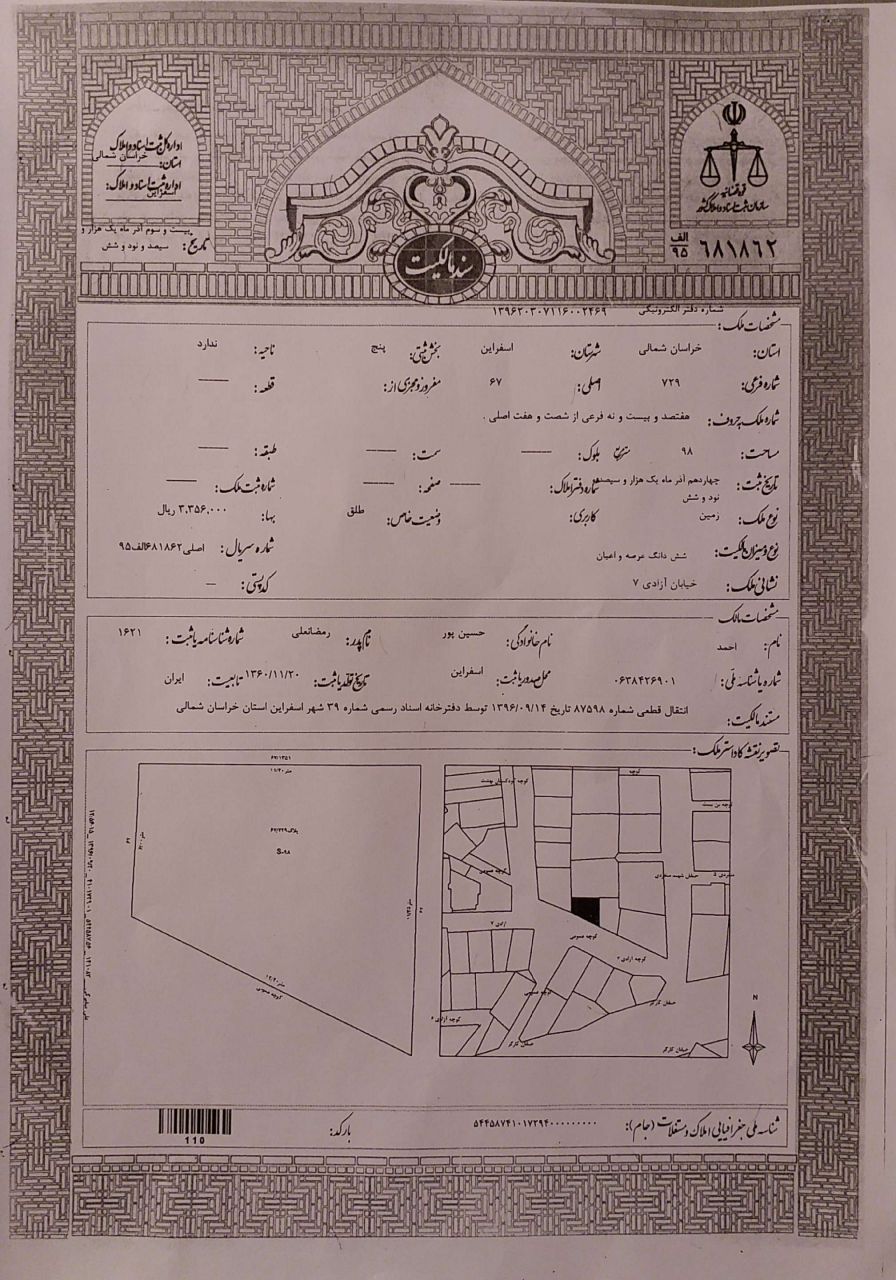 قوه قضائیه
سازمان ثبت اسناد و املاک کشور
۶۸۱۸۶۲ الف ۹۵
اداره کل ثبت اسناد و املاک
استان: خراسان شمالی
اداره ثبت اسناد و املاک:
اسفراین
تاریخ: بیست و سوم آذر ماه یک هزار و
سیصد و نود و شش
سند مالکیت
شماره دفتر الکترونیکی ۱۳۹۶۲۰۳۰۷۱۱۶۰۰۲۴۶۹
مشخصات ملک:
استان: خراسان شمالی شهرستان: اسفراین بخش ثبتی: پنج ناحیه: ندارد
شماره فرعی: ۷۲۹ اصلی: ۶۷ مفروز و مجزی از: قطعه: ——
شماره ملک به حروف: هفتصد و بیست و نه فرعی از شصت و هفت اصلی .
مساحت: ۹۸ مترمربع بلوک: —— سمت: —— طبقه: ——
تاریخ ثبت: چهاردهم آذر ماه یک هزار و سیصد و شماره دفتر املاک: —— صفحه: —— شماره ثبت ملک: ——
نود و شش
نوع ملک: زمین کاربری: وضعیت خاص: طلق بها: ۳.۳۵۶.۰۰۰ ریال
نوع و میزان مالکیت: شش دانگ عرصه و اعیان شماره سریال: اصلی۶۸۱۸۶۲الف۹۵
نشانی ملک: خیابان آزادی ۷ کدپستی: —
مشخصات مالک:
نام: احمد نام خانوادگی: حسین پور نام پدر: رمضانعلی شماره شناسنامه یا ثبت: ۱۶۲۱
شماره یا شناسه ملی: ۰۶۳۸۴۲۶۹۰۱ محل صدور یا ثبت: اسفراین تاریخ تولد یا ثبت: ۱۳۶۰/۱۱/۲۰ تابعیت: ایران
مستند مالکیت: انتقال قطعی شماره ۸۷۵۹۸ تاریخ ۱۳۹۶/۰۹/۱۴ توسط دفترخانه اسناد رسمی شماره ۳۹ شهر اسفراین استان خراسان شمالی
تصویر نقشه کاداستر ملک:
۶۷/۱۳۵۱
پلاک ۶۷/۷۲۹
S=۹۸
کوچه عمومی
کوچه
کوچه کودکستان بهشت
کوچه بن بست
کوچه عمومی
آزادی ۷
کوچه عمومی
کوچه آزادی ۲
کوچه عمومی
خیابان کارگر
خیابان کارگر
خیابان کارگر
N
شناسه ملی جغرافیایی املاک و مستغلات (جام): ۵۴۴۵۸۷۴۱۰۱۷۲۹۴۰۰۰۰۰۰۰۰۰۰
بارکد:
110